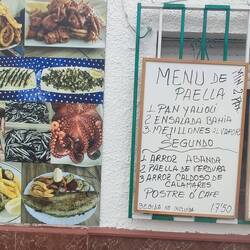 MENU DE
PAELLA
1 PAN YALIOLI
2 ENSALADA BAHIA
3 MEJILLONES AL VAPOR
SEGUNDO
1 ARROZ ABANDA
2 PAELLA DE VERDURA
3 ARROZ CALDOSO DE
CALAMARES
POSTRE O CAFE
BEBIDA NO INCLUIDA 17'50